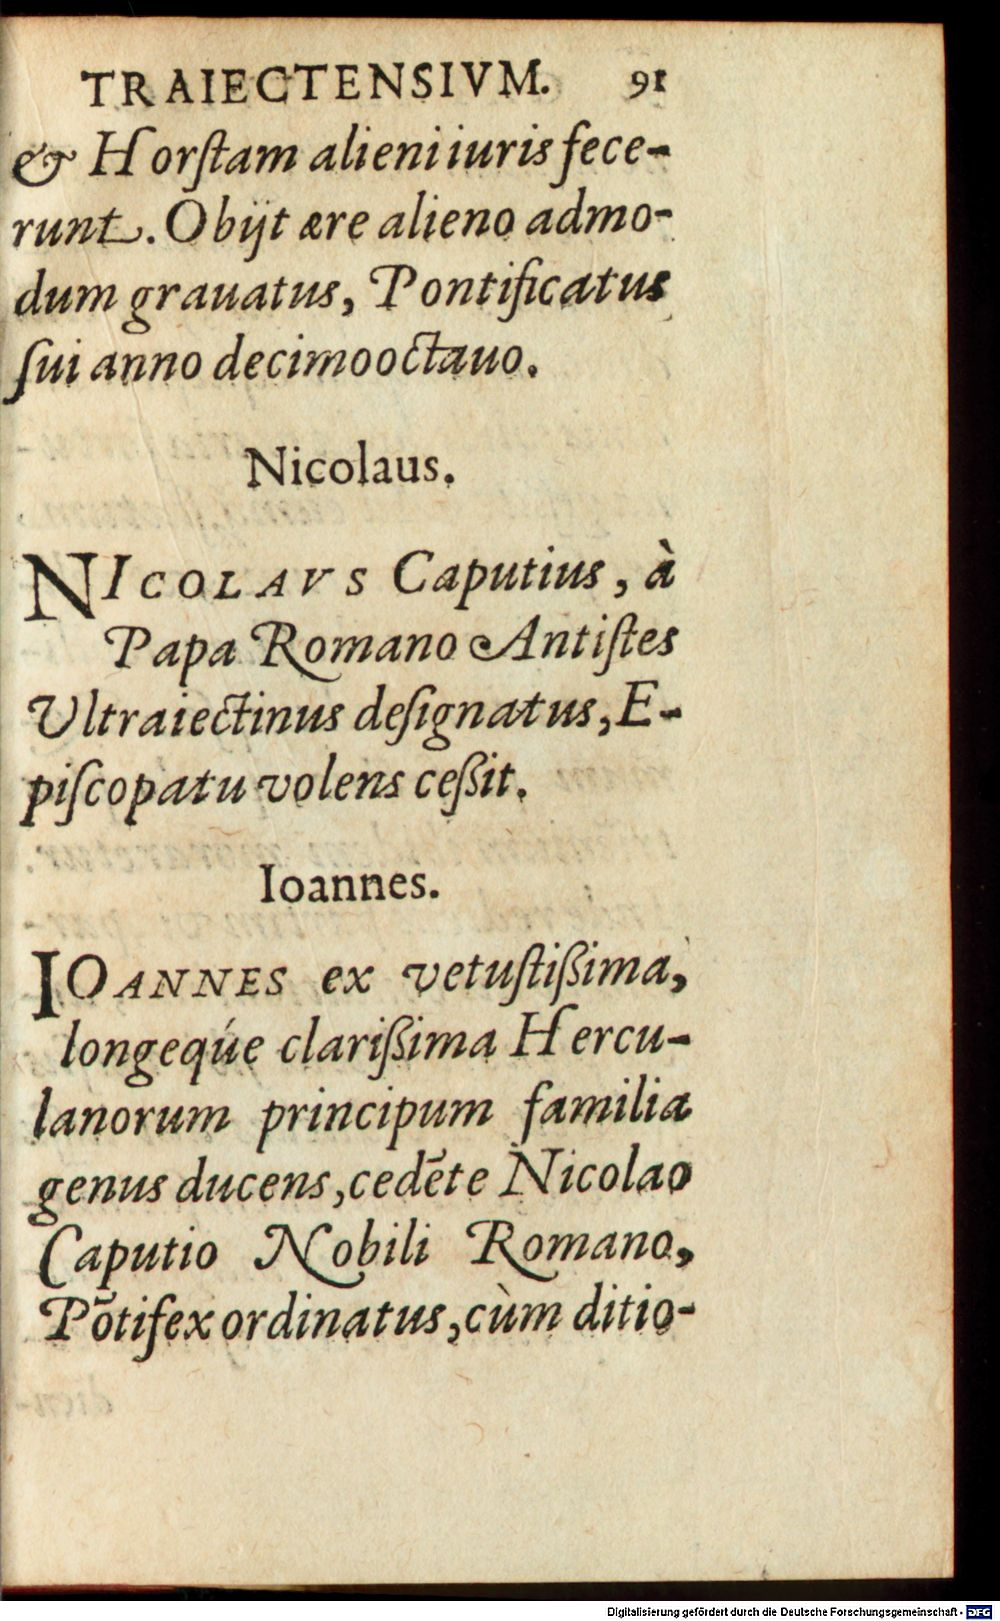 TRAIECTENSIVM. 91
& Horſtam alieni iuris fece-
runt. Obijt ære alieno admo-
dum grauatus, Pontificatus
ſui anno decimooctauo.
Nicolaus.
NICOLAVS Caputius, à
Papa Romano Antiſtes
Ultraiectinus deſignatus, E-
piſcopatu volens ceßit.
Ioannes.
IOANNES ex vetuſtißima,
longeq́ue clarißima Hercu-
lanorum principum familia
genus ducens, cedēte Nicolao
Caputio Nobili Romano,
Pōtifex ordinatus, cùm ditio-
Digitalisierung gefördert durch die Deutsche Forschungsgemeinschaft - DFG